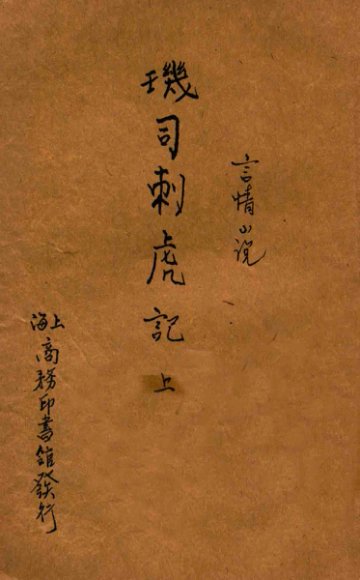 言情小说
璣司刺虎記 上
上海商務印書館發行